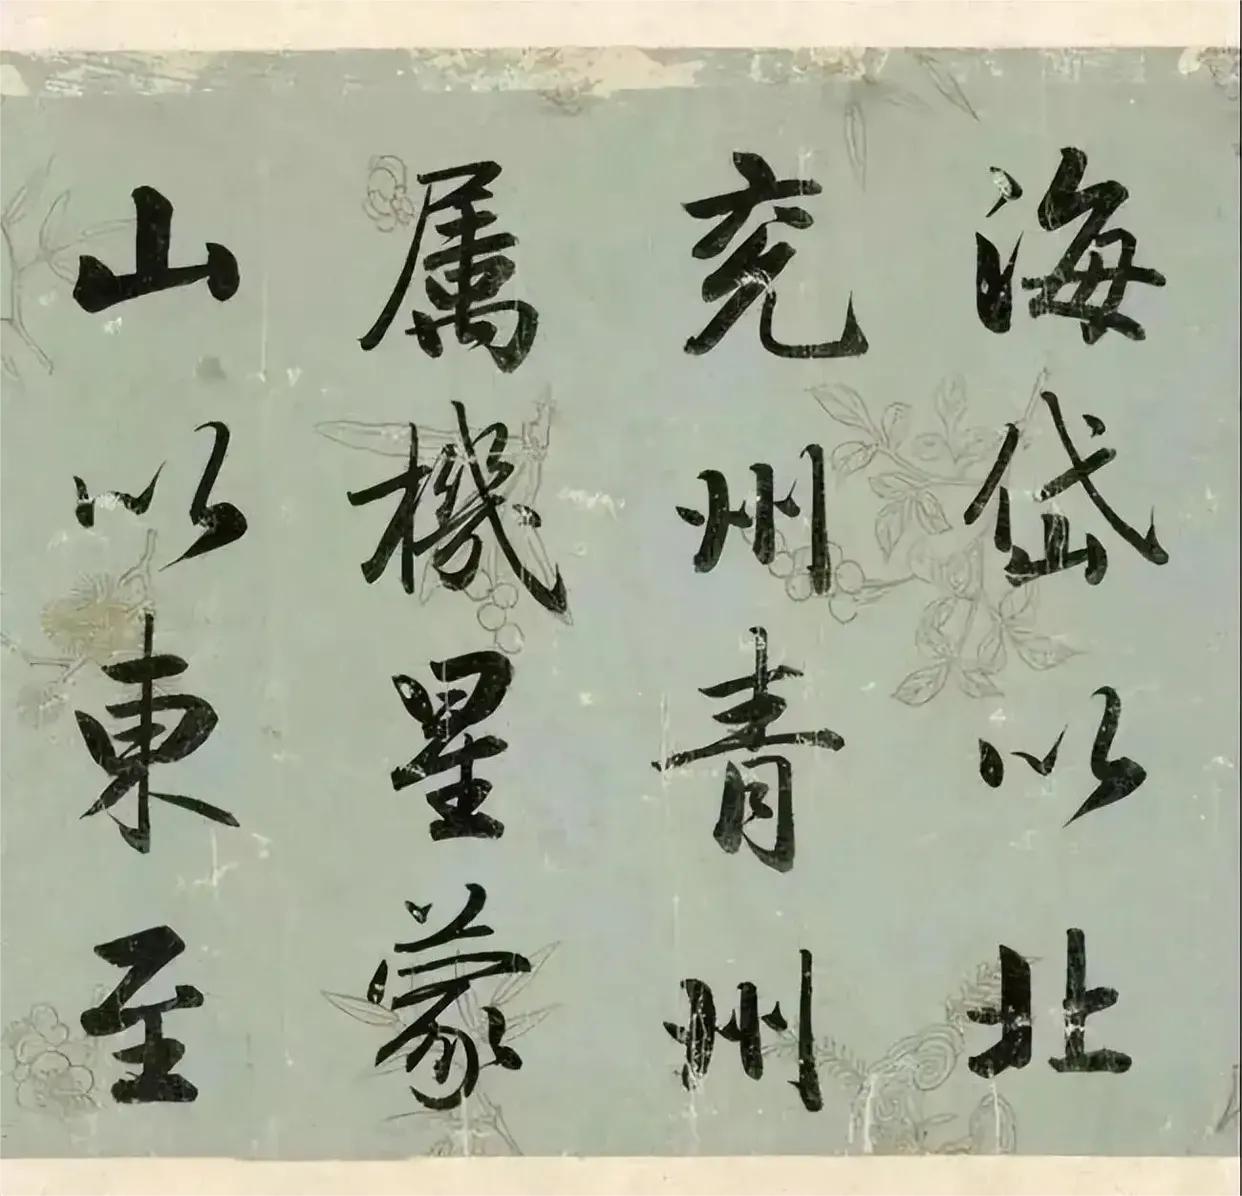 海岱以北
兖州青州
属機星蒙
山以東至